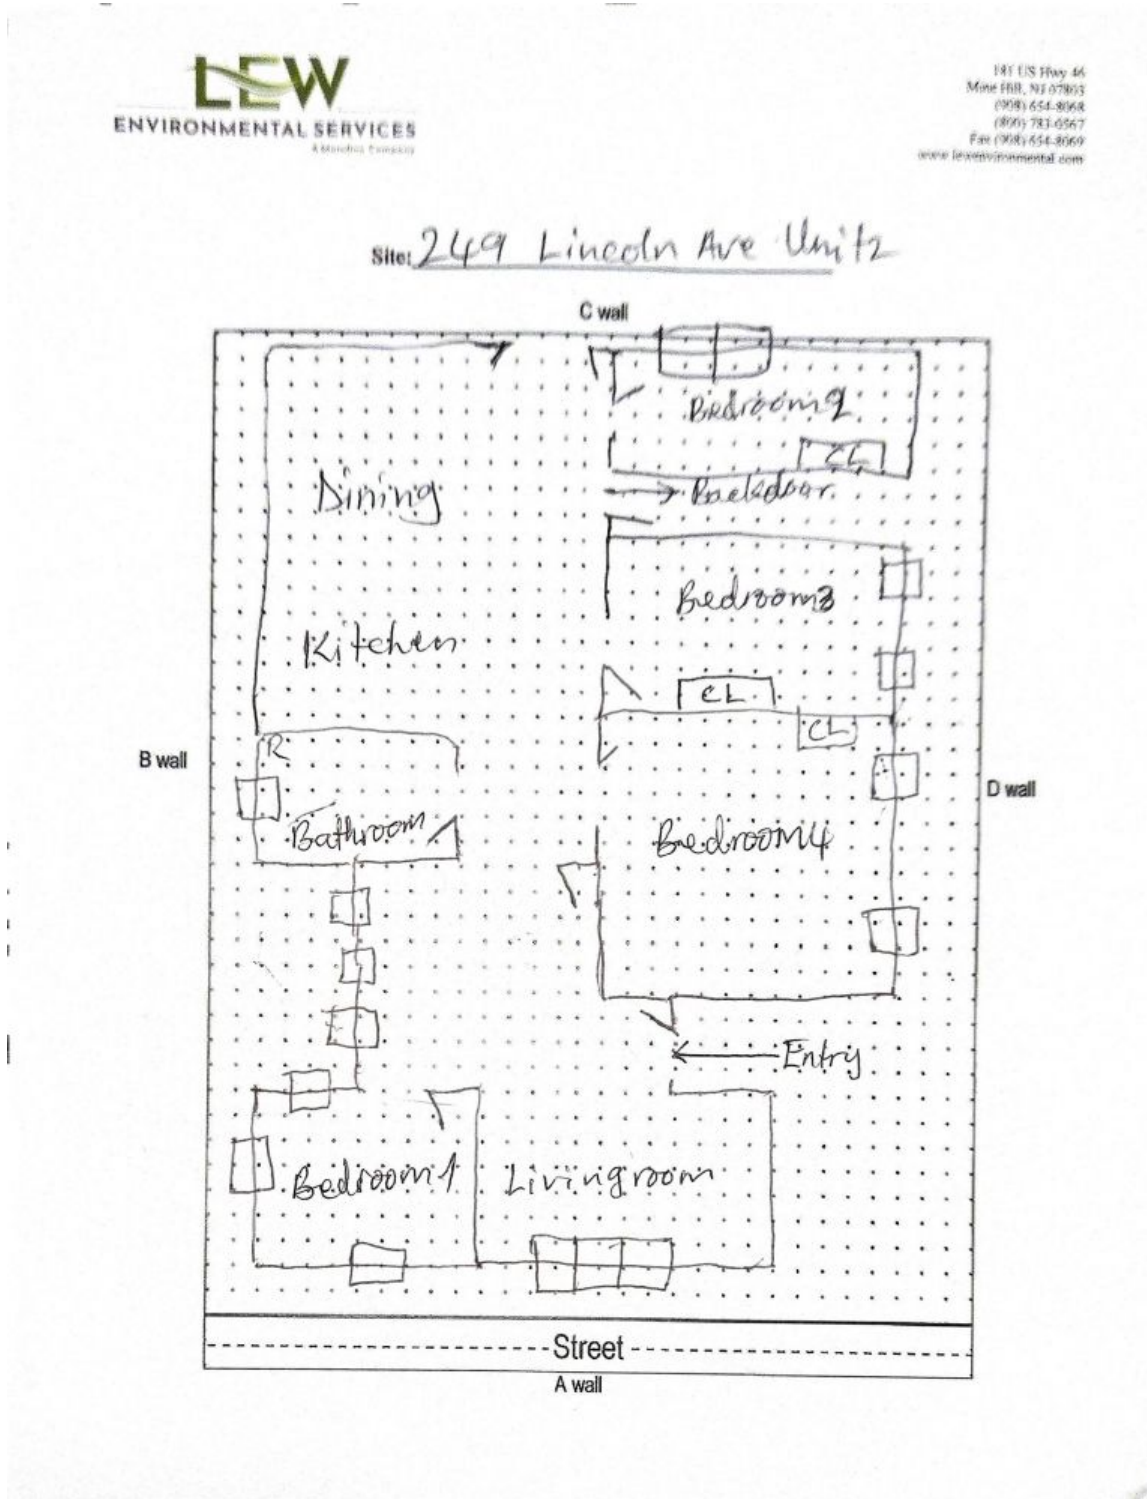 LEW
ENVIRONMENTAL SERVICES
181 US Hwy 46
Mine Hill, NJ 07803
(908) 654-8068
(800) 783-0567
Fax (908) 654-8069
www.lewenvironmental.com
Site: 249 Lincoln Ave Unit2
C wall
Bedroom2
CL
Dining
Backdoor
Bedroom3
Kitchen
CL
CL
R
B wall
D wall
Bathroom
Bedroom4
Entry
Bedroom1
Livingroom
Street
A wall